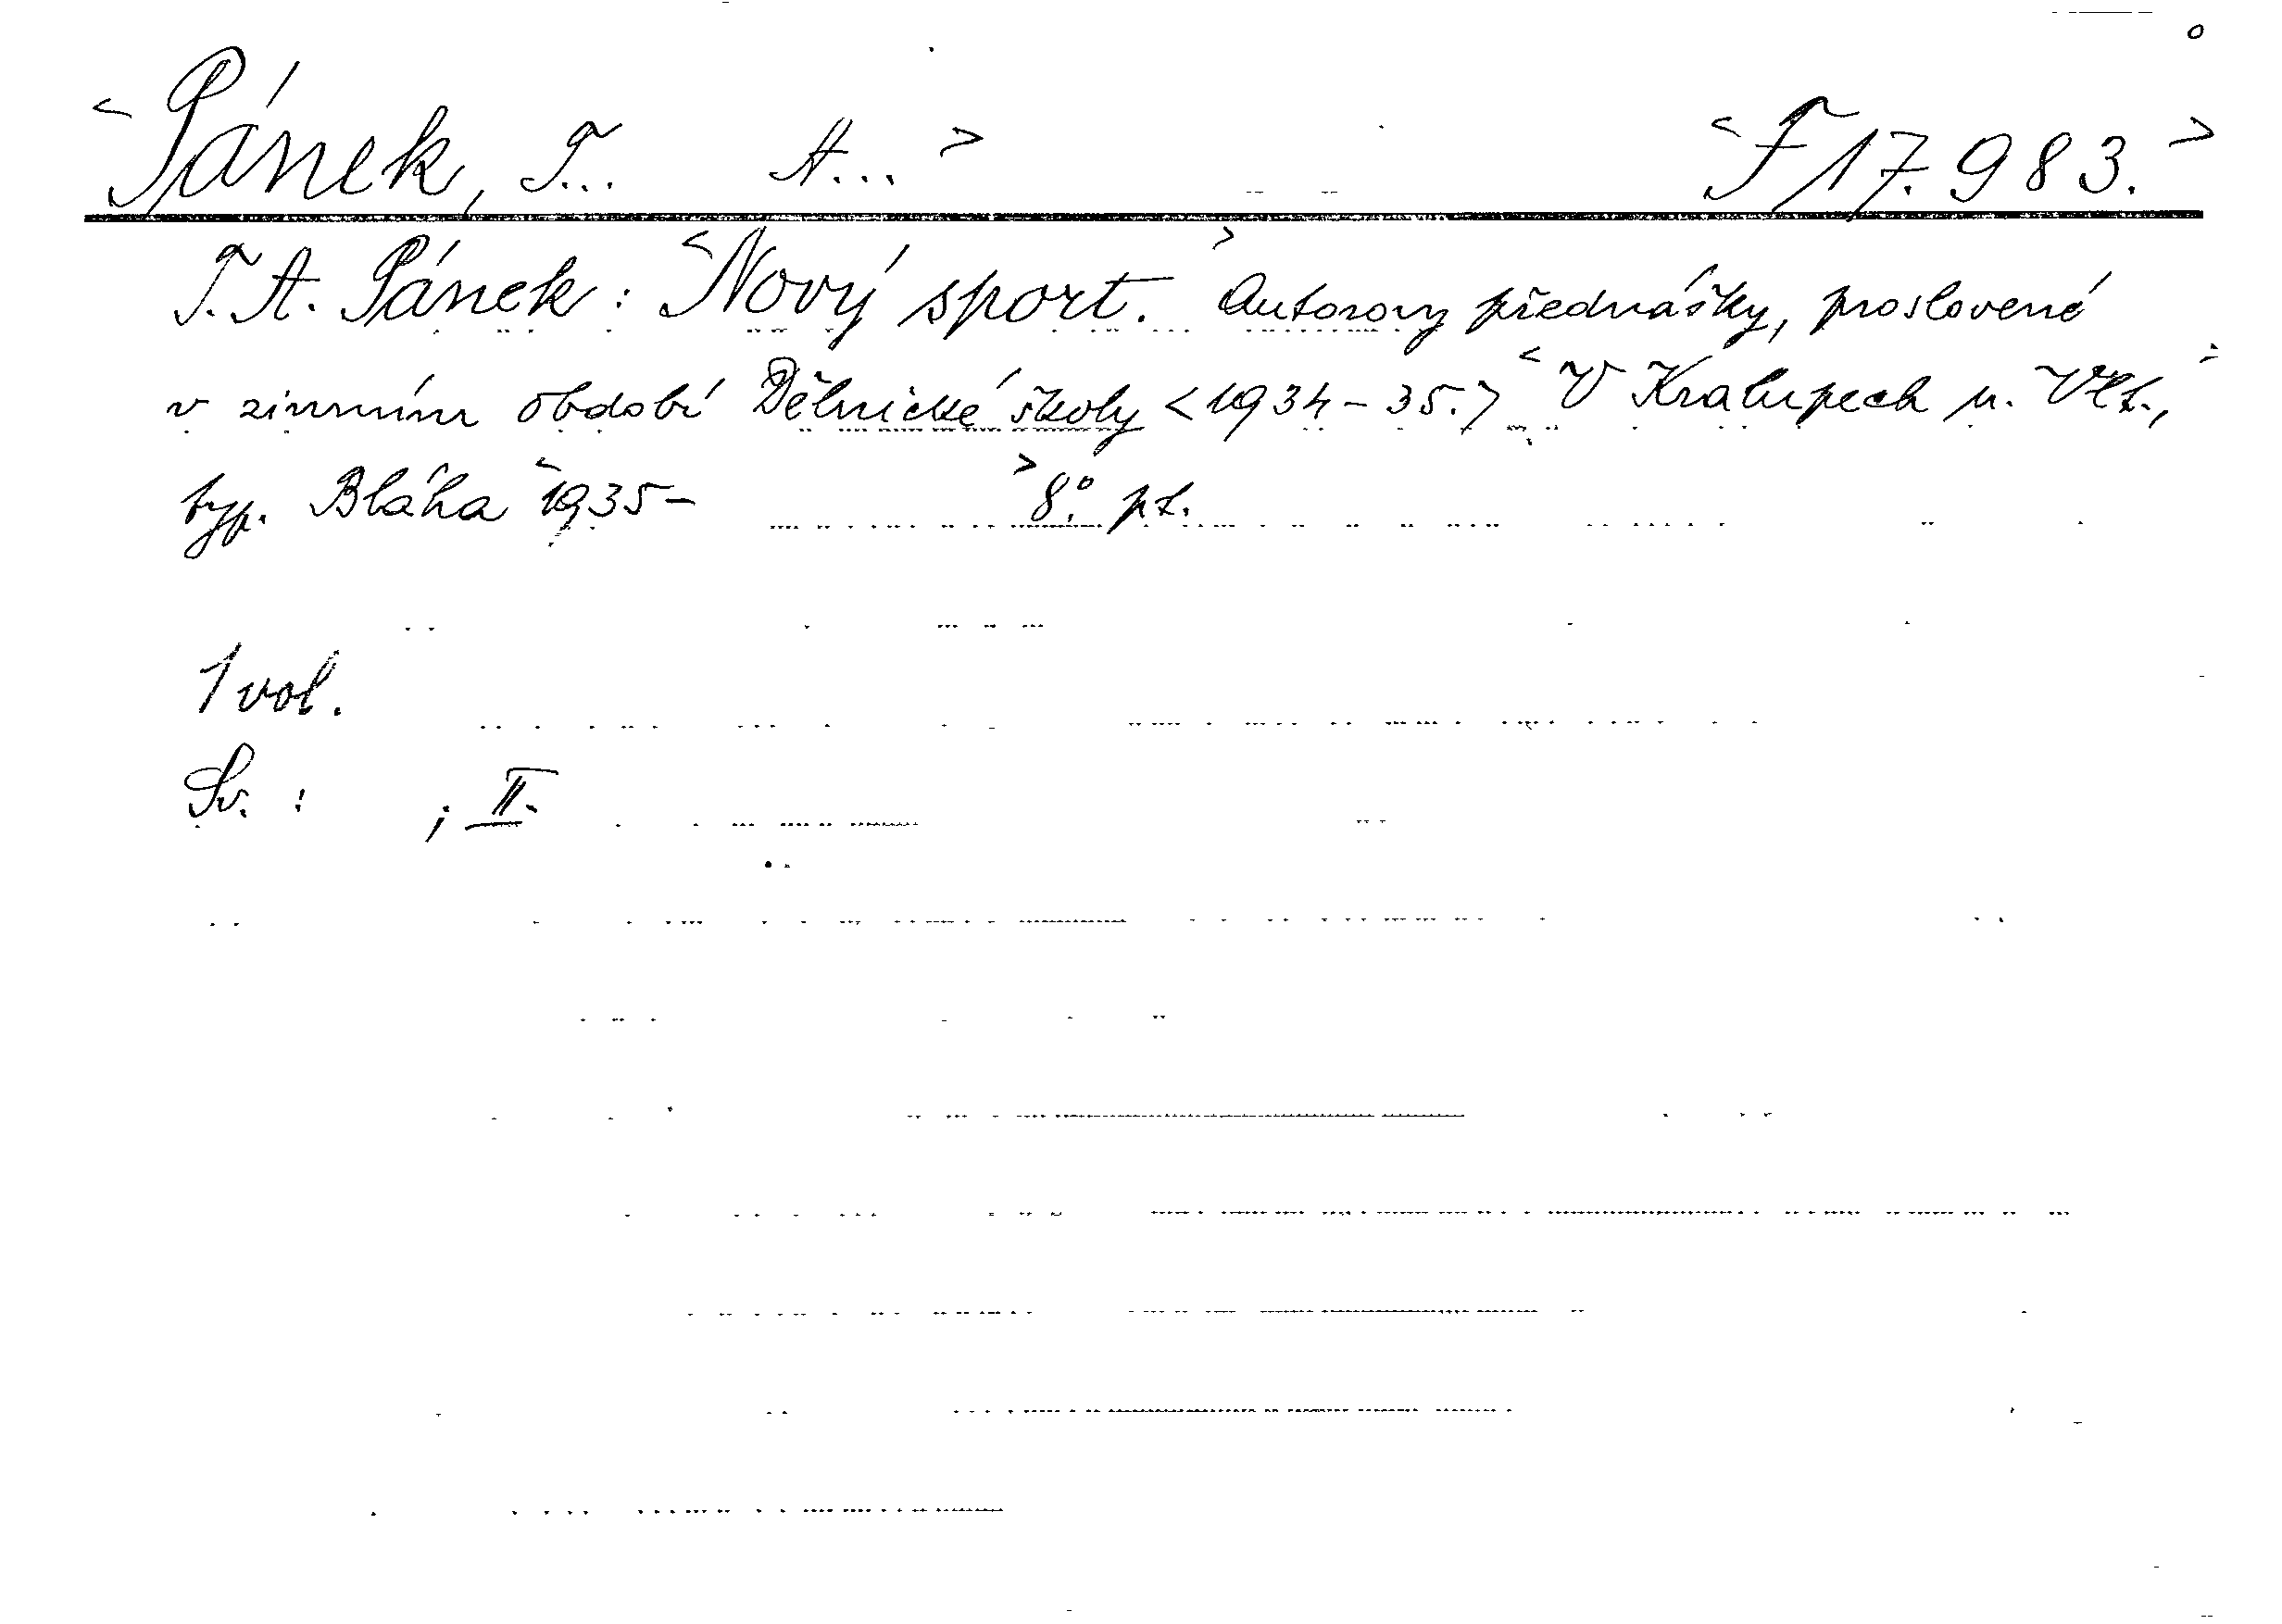 <Pánek, T... A...> <F 17.983.>
T. A. Pánek: <Nový sport.> Autorovy přednášky, proslovené
v zimním období Dělnické školy <1934-35.> <V Kralupech n. Vlt.,>
typ. Bláha <1935- > 8.° pt.
1 vol.
Sv. : ; II.